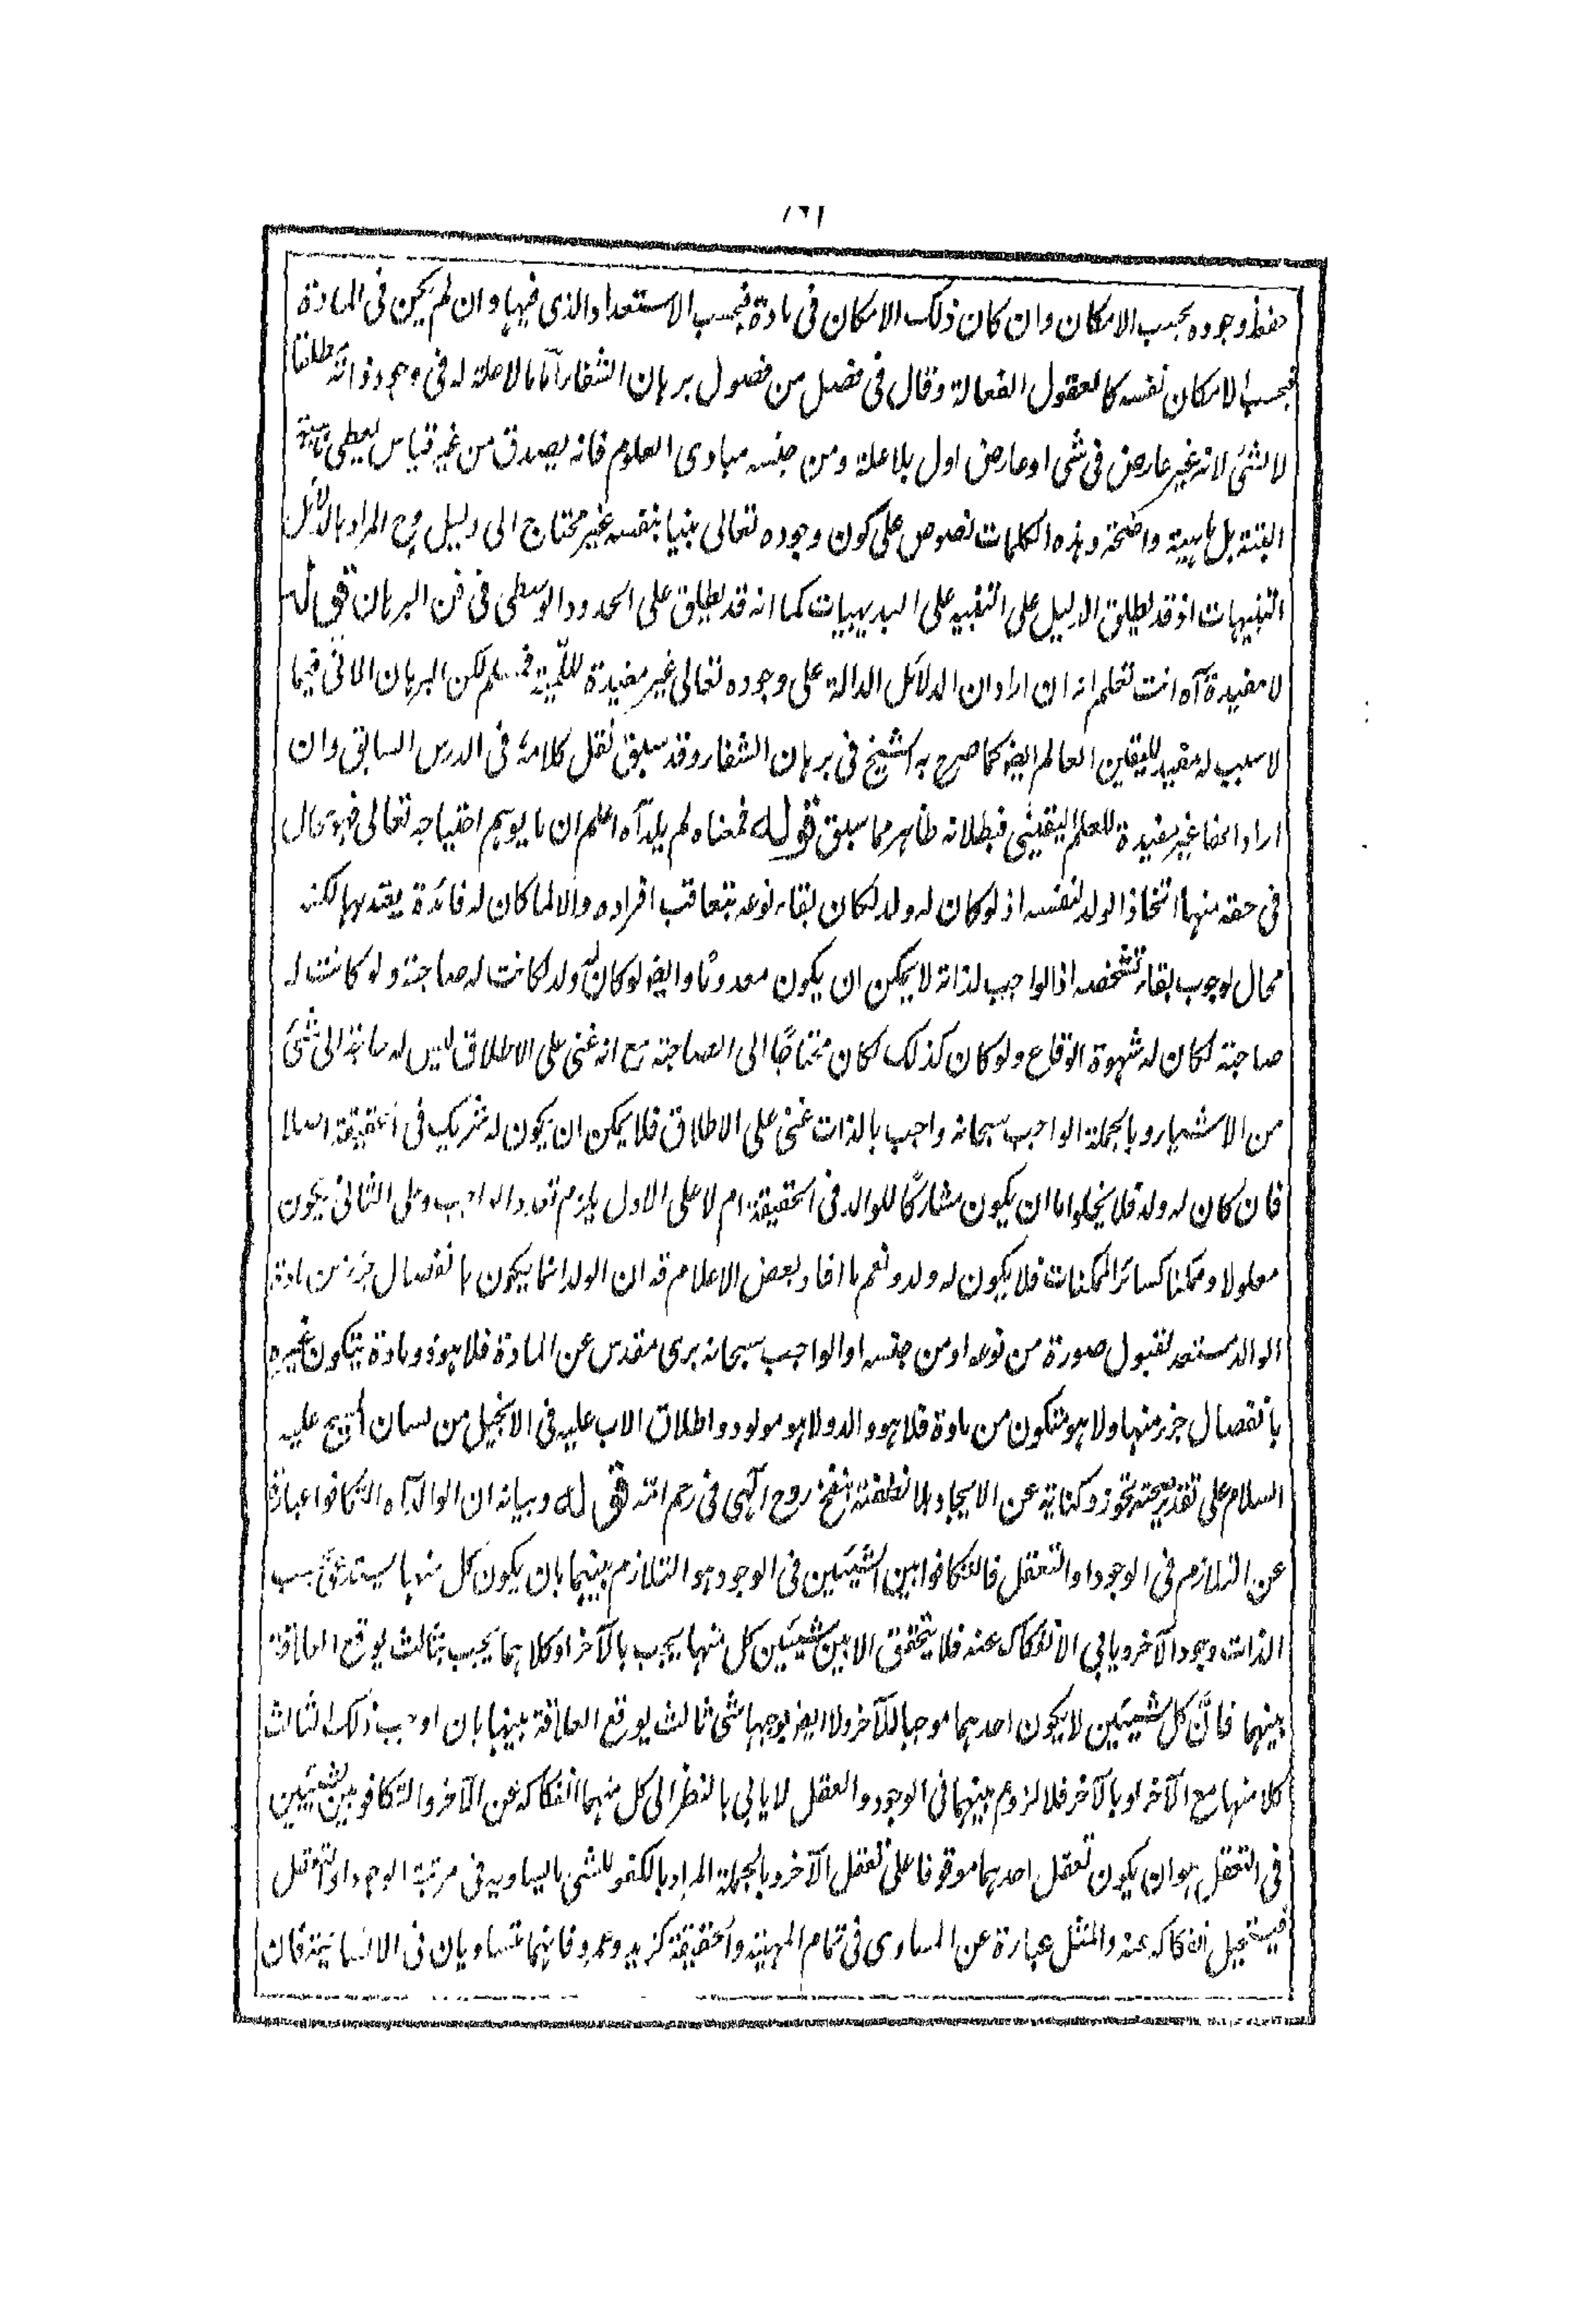 حفظ وجوده بحسب الامكان وان كان ذلك الامكان فى مادة فبحسب الاستعداد الذى فيها وان لم يكن فى المادة
فبحسب الامكان نفسه كالعقول الفعالة وقال فى فصل من فصول برهان الشفاء اما ما لا علة له فى وجود ذاته مطلقا
لا لشئ لانه غير عارض فى شئ او عارض اول بلا علة ومن جنسه مبادى العلوم فانه يصدق من غير قياس يعطى
البتة بل ما بينة واضحة وهذه الكلمات نصوص على كون وجوده تعالى بينا بنفسه غير محتاج الى دليل وح المراد بالدلائل
التنبيهات اذ قد يطلق الدليل على التنبيه على البديهيات كما انه قد يطلق على الحدود الوسطى فى فن البرهان قوله
لا مفيدة آه انت تعلم انه ان اراد ان الدلائل الدالة على وجوده تعالى غير مفيدة للمية فمسلم لكن البرهان الانى فيما
لا سبب له مفيد لليقين العالم ايضا كما صرح به الشيخ فى برهان الشفاء وقد سبق نقل كلامه فى الدرس السابق وان
اراد انها غير مفيدة للعلم اليقينى فبطلانه ظاهر مما سبق قوله فمعناه لم يلد آه اعلم ان ما يوهم احتياجه تعالى فهو محال
فى حقه منها اتخاذ الولد لنفسه اذ لو كان له ولد لكان بقاء نوعه بتعاقب افراده والا لما كان له فائدة يعتد بها لكنه
محال لوجوب بقاء تشخصه اذ الواجب لذاته لا يمكن ان يكون معدوما وايضا لو كان له ولد لكانت له صاحبة ولو كانت له
صاحبة لكان له شهوة الوقاع ولو كان كذلك لكان محتاجًا الى الصاحبة مع انه غنى على الاطلاق ليس له حاجة الى شئ
من الاشياء وبالجملة الواجب سبحانه واجب بالذات غنى على الاطلاق فلا يمكن ان يكون له شريك فى الحقيقة اصلا
فان كان له ولد فلا يخلو اما ان يكون مشاركًا للوالد فى الحقيقة ام لا على الاول يلزم تعدد الواجب وعلى الثانى يكون
معلولا وممكنا كسائر الممكنات فلا يكون له ولد ونعم ما افاد بعض الاعلام قد ان الولد انما يكون بانفصال جزء من مادة
الوالد مستعد لقبول صورة من نوعه او من جنسه او الواجب سبحانه برى مقدس عن المادة فلا هو ذو مادة يتكون غيره
بانفصال جزء منها ولا هو متكون من مادة فلا هو والد ولا هو مولود واطلاق الاب عليه فى الانجيل من لسان المسيح عليه
السلام على تقدير صحته تجوز وكناية عن الايجاد بلا نطفة بنفخ روح الهى فى رحم امه قوله وبيانه ان الوالد آه التكافوا عبارة
عن التلازم فى الوجود او التعقل فالتكافوا بين الشيئين فى الوجود هو التلازم بينهما بان يكون كل منهما يستدعى بحسب
الذات وجود الآخر ويابى الانفكاك عنه فلا يتحقق الا بين شيئين كل منهما يجب بالآخر او كلاهما يجب بثالث يوقع العلاقة
بينهما فان كل شيئين لا يكون احدهما موجبا للآخر ولا ايضا يوجبهما شئ ثالث يوقع العلاقة بينهما بان اوجب ذلك الثالث
كلا منهما مع الآخر او بالآخر فلا لزوم بينهما فى الوجود والعقل لا يابى بالنظر الى كل منهما انفكاكه عن الآخر والتكافو بين الشيئين
فى التعقل هو ان يكون تعقل احدهما موقوفا على تعقل الآخر وبالجملة المراد بالكفو للشئ ما يساويه فى مرتبة الوجود او التعقل
فيستحيل انفكاكه عنه والمثل عبارة عن المساوى فى تمام المهية والحقيقة كزيد وعمرو فانهما متساويان فى الانسانية فان